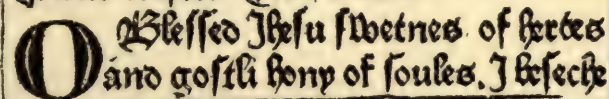 O Blessed Jhesu swetnes of hertes
and gostli hony of soules. J beseche